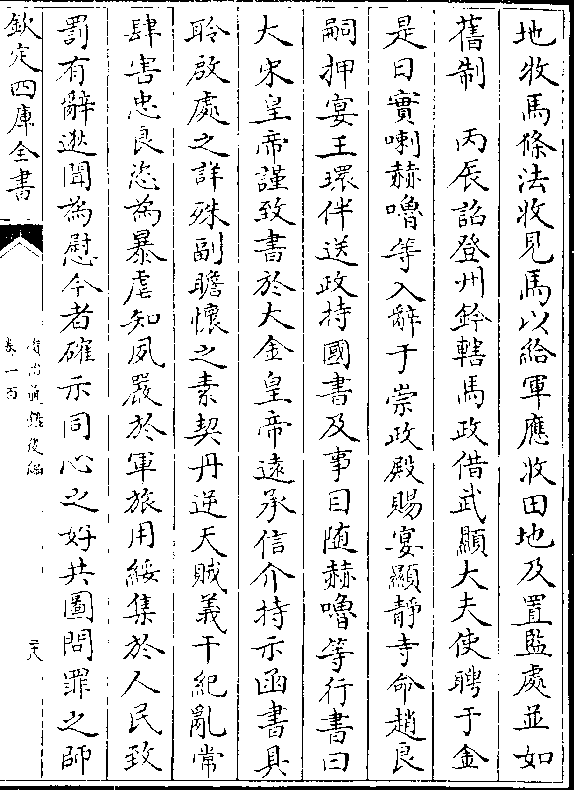 地牧馬條法收見馬以給軍應牧田地及置監處並如
舊制　丙辰詔登州鈐轄馬政借武顯大夫使聘于金
是日實喇赫嚕等入辭于崇政殿賜宴顯靜寺命趙良
嗣押宴王環伴送政持國書及事目随赫嚕等行書曰
大宋皇帝謹致書於大金皇帝逺承信介持示函書具
聆啟處之詳殊副瞻懷之素契丹逆天賊義干紀亂常
肆害忠良恣為暴虐知夙嚴於軍旅用綏集於人民致
罰有辭逖聞為慰今者確示同心之好共圖問罪之師
欽定四庫全書
資治通鑑後編
卷一百
二六